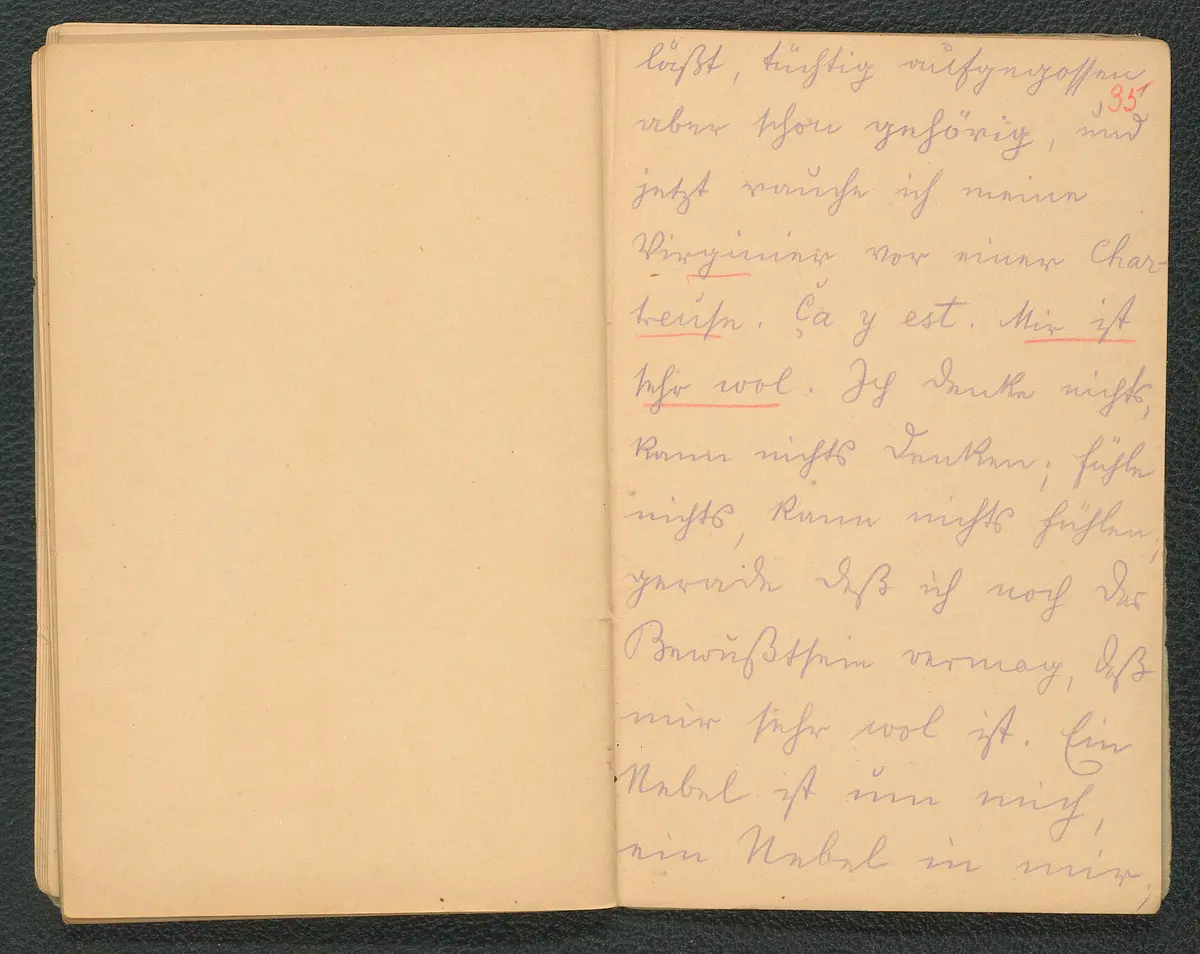 läßt, tüchtig aufgegossen
35
aber schon gehörig, und
jetzt rauche ich meine
Virginier vor einer Char-
treuse. Ça y est. Mir ist
sehr wol. Ich denke nichts,
kann nichts denken; fühle
nichts, kann nichts fühlen;
gerade daß ich noch das
Bewußtsein vermag, daß
mir sehr wol ist. Ein
Nebel ist um mich,
ein Nebel in mir;